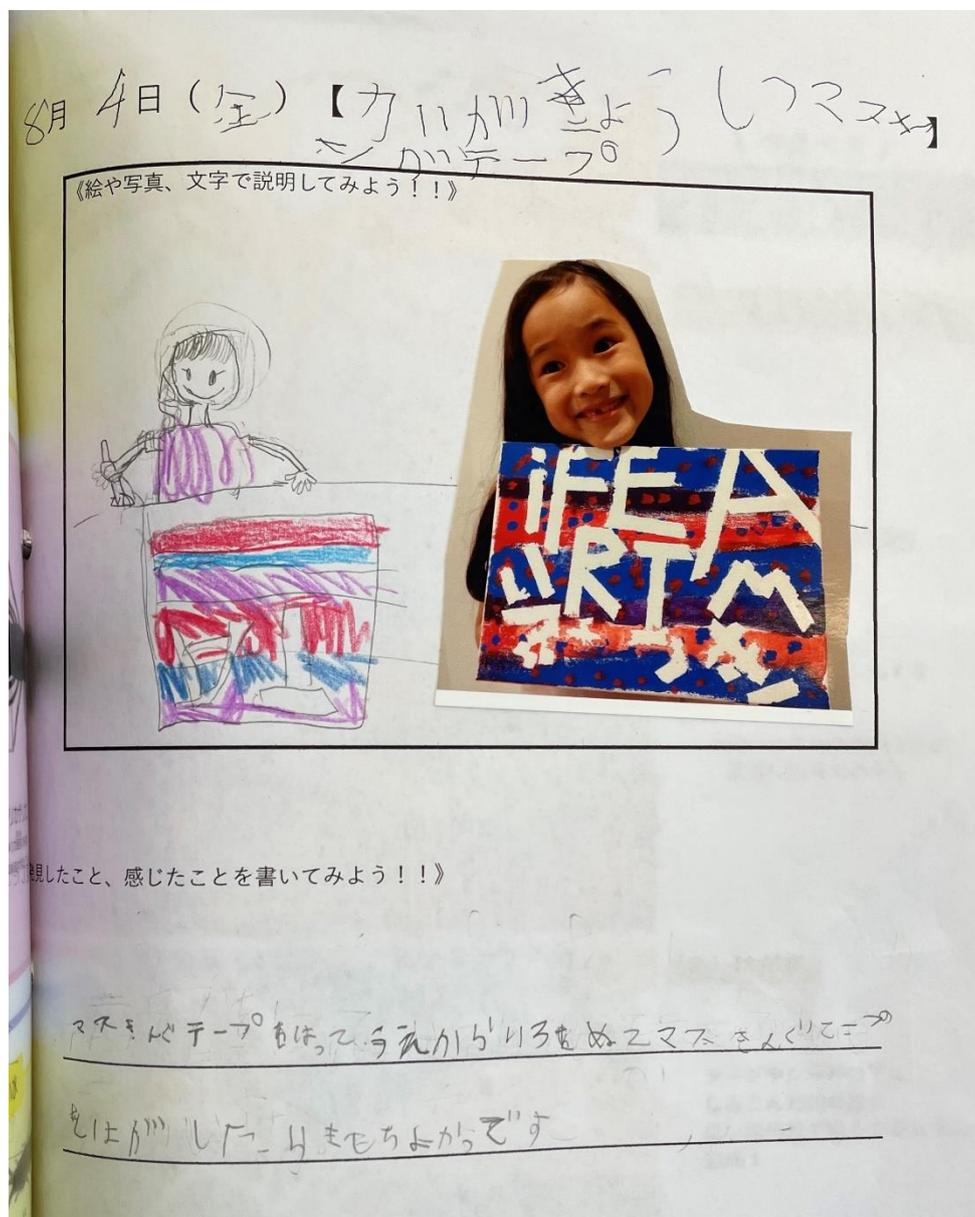 8月 4日 (金) 【カいがきょうしつマスキ】
ンがテープ
《絵や写真、文字で説明してみよう!!》
iFEA
RT M
発見したこと、感じたことを書いてみよう!!》
マスきんぐテープをはって うえからいろをぬてマスきんぐてープ
をはがしたらきもちよかったです